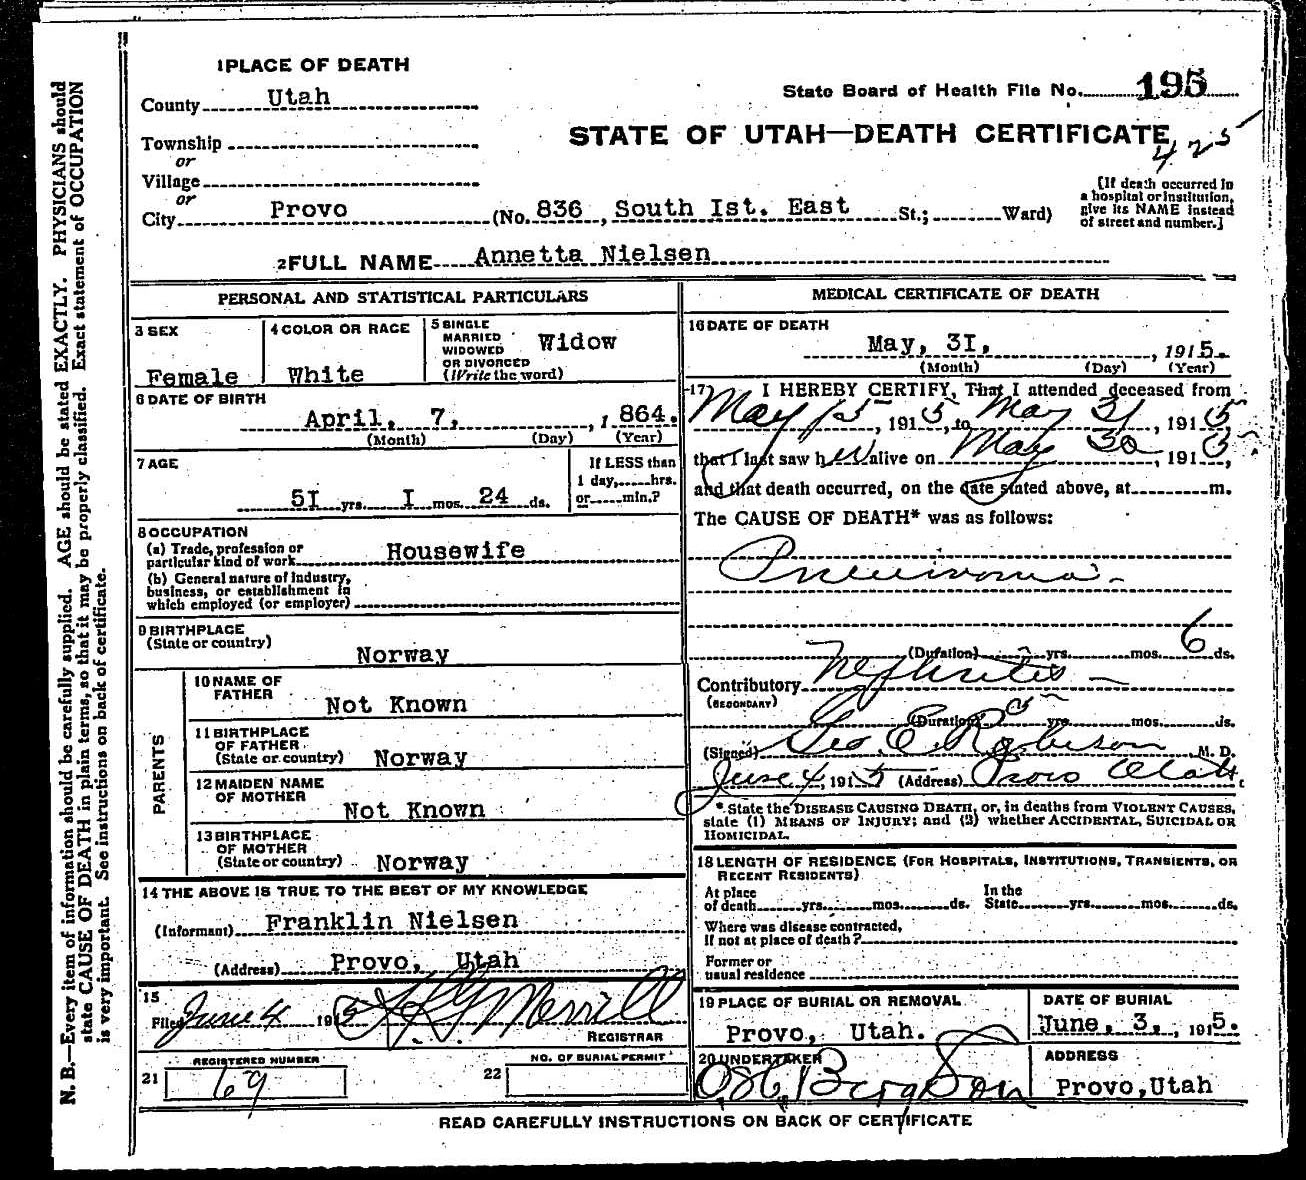 1 PLACE OF DEATH
County Utah
State Board of Health File No. 195
STATE OF UTAH—DEATH CERTIFICATE
425
Township
or
Village
or
City Provo (No. 836, South Ist. East St.; Ward)
[If death occurred in
a hospital or institution,
give its NAME instead
of street and number.]
2 FULL NAME Annetta Nielsen
PERSONAL AND STATISTICAL PARTICULARS
3 SEX
Female
4 COLOR OR RACE
White
5 SINGLE
MARRIED
WIDOWED
OR DIVORCED
(Write the word)
Widow
6 DATE OF BIRTH
April, 7, 1864.
(Month) (Day) (Year)
7 AGE
5I yrs. I mos. 24 ds.
If LESS than
1 day, hrs.
or min.?
8 OCCUPATION
(a) Trade, profession or
particular kind of work Housewife
(b) General nature of industry,
business, or establishment in
which employed (or employer)
9 BIRTHPLACE
(State or country)
Norway
PARENTS
10 NAME OF
FATHER
Not Known
11 BIRTHPLACE
OF FATHER
(State or country) Norway
12 MAIDEN NAME
OF MOTHER
Not Known
13 BIRTHPLACE
OF MOTHER
(State or country) Norway
14 THE ABOVE IS TRUE TO THE BEST OF MY KNOWLEDGE
(Informant) Franklin Nielsen
(Address) Provo, Utah
15
Filed June 4 1915 Merrill
REGISTRAR
REGISTERED NUMBER
21 69
NO. OF BURIAL PERMIT
22
MEDICAL CERTIFICATE OF DEATH
16 DATE OF DEATH
May, 3I, , 1915.
(Month) (Day) (Year)
17 I HEREBY CERTIFY, That I attended deceased from
May 15, 1915, to May 31, 1915,
that I last saw her alive on May 30, 1915,
and that death occurred, on the date stated above, at m.
The CAUSE OF DEATH* was as follows:
Pneumonia
(Duration) yrs. mos. 6 ds.
Contributory Nephritis
(SECONDARY)
(Duration) 5 yrs. mos. ds.
(Signed) Geo. E. Robison M. D.
June 4, 1915 (Address) Provo Utah
* State the DISEASE CAUSING DEATH, or, in deaths from VIOLENT CAUSES,
state (1) MEANS OF INJURY; and (2) whether ACCIDENTAL, SUICIDAL OR
HOMICIDAL.
18 LENGTH OF RESIDENCE (FOR HOSPITALS, INSTITUTIONS, TRANSIENTS, OR
RECENT RESIDENTS)
At place
of death yrs. mos. ds.
In the
State yrs. mos. ds.
Where was disease contracted,
If not at place of death?
Former or
usual residence
19 PLACE OF BURIAL OR REMOVAL
Provo, Utah.
DATE OF BURIAL
June, 3, 1915.
20 UNDERTAKER
Berg & Son
ADDRESS
Provo, Utah
READ CAREFULLY INSTRUCTIONS ON BACK OF CERTIFICATE
N. B.—Every item of information should be carefully supplied. AGE should be stated EXACTLY. PHYSICIANS should
state CAUSE OF DEATH in plain terms, so that it may be properly classified. Exact statement of OCCUPATION
is very important. See instructions on back of certificate.